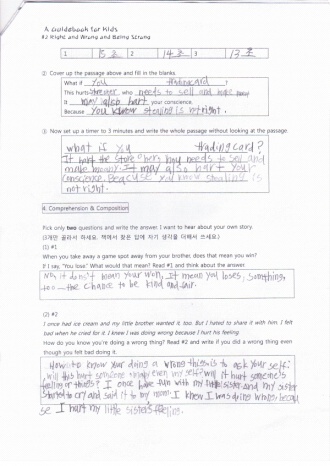 A Guidebook for Kids
#2 Right and Wrong and Being Strong
1 15초 2 14초 3 13초
② Cover up the passage above and fill in the blanks.
What if you tradingcard ?
This hurts storeuer, who needs to sell and make money
It may also hurt your conscience.
Because you know stealing is not right.
③ Now set up a timer to 3 minutes and write the whole passage without looking at the passage.
what if you trading card?
It hurt the store they needs to sell and
make money. It may also hurt your
conscience. Beacuse you know stealing is
not right.
4. Comprehension & Composition
Pick only two questions and write the answer I want to hear about your own story.
(2개만 골라서 하세요. 책에서 찾은 답에 자기 생각을 더해서 쓰세요.)
(1) #1
When you take away a game spot away from your brother, does that mean you win?
If I say, "You lose." What would that mean? Read #1 and think about the answer.
No, it don't mean your won, It mean you loses, something,
too — the chance to be kind and fair.
(2) #2
I once had ice cream and my little brother wanted it, too. But I hated to share it with him. I felt
bad when he cried for it. I knew I was doing wrong because I hurt his feeling.
How do you know you're doing a wrong thing? Read #2 and write if you did a wrong thing even
though you felt bad doing it.
How to know your doing a wrong thing is to ask your self:
will this hurt someone or even my self? will it hurt someone's
feeling or things? I once fun with my little sister and my sister
started to cry and said it to my mom. I knew I was doing wrong, becau
se I hurt my little sister's feeling.